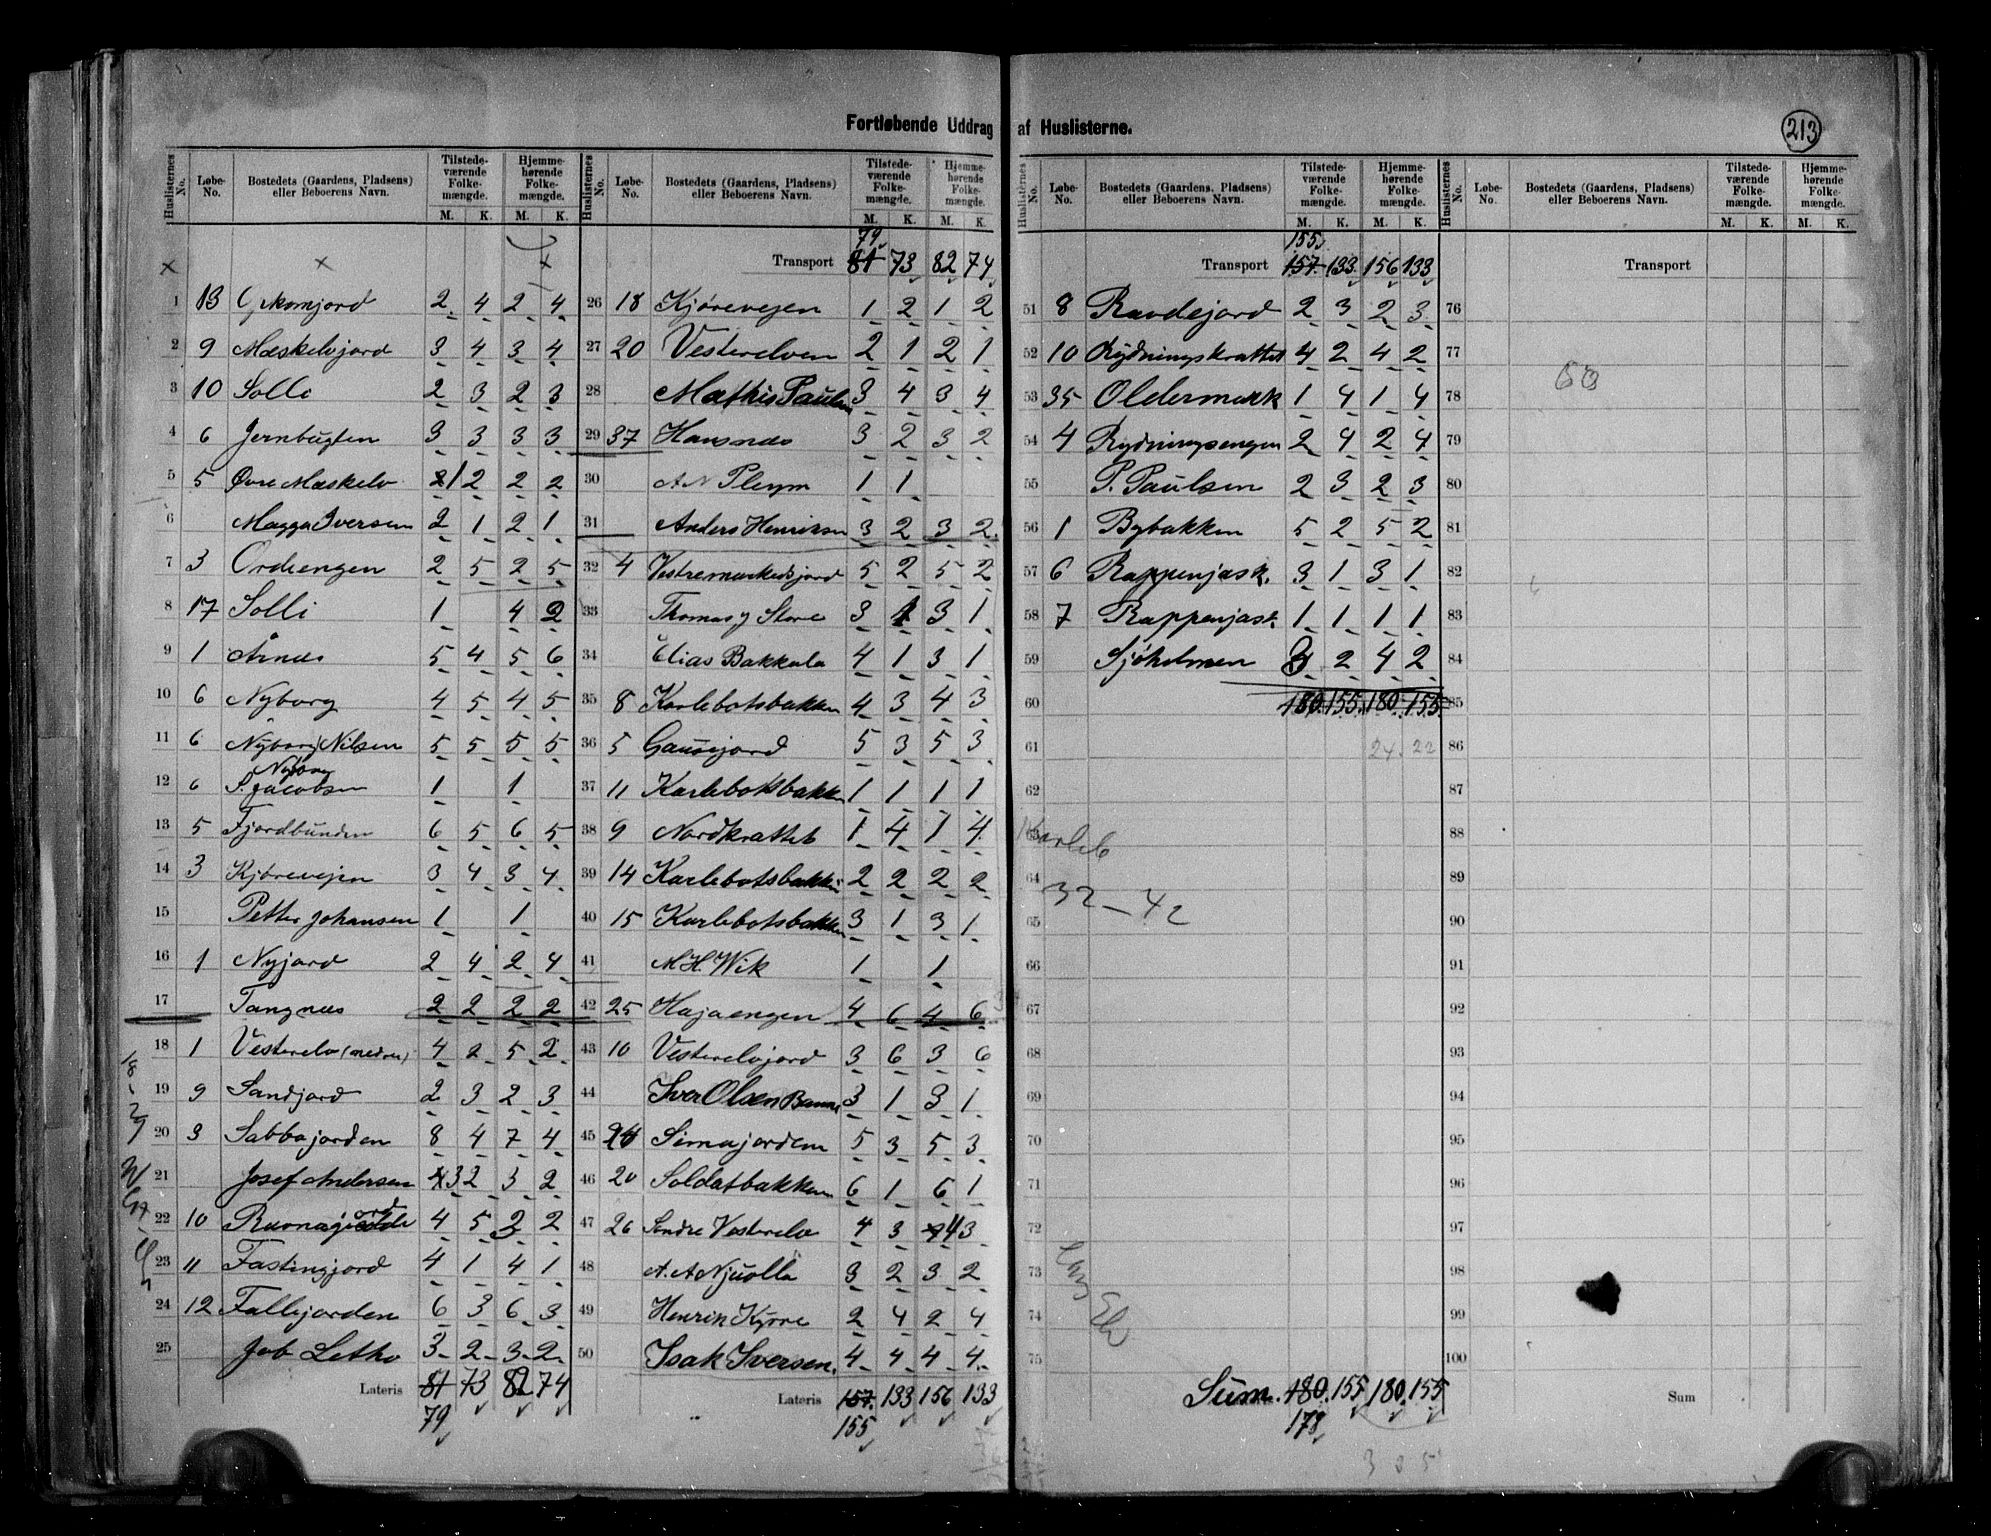 Fortløbende Uddrag af Huslisterne.
213
Huslisternes No. Løbe-No. Bostedets (Gaardens, Pladsens) eller Beboerens Navn. Tilstedeværende Folkemængde. M. K. Hjemmehørende Folkemængde. M. K.
1 13 2 4 2 4
2 9 Mæskelvjord 3 4 3 4
3 10 Solli 2 3 2 3
4 6 Jernbugten 3 3 3 3
5 5 Øvre Mæskelv 1 2 2 2
6 Magga Iversen 2 1 2 1
7 3 Ordiengen 2 5 2 5
8 17 Solli 1 4 2
9 1 Årnæs 5 4 5 6
10 6 Nyborg 4 5 4 5
11 6 Nyborg Nilsen 5 5 5 5
12 6 Nyborg S. Jacobsen 1 1
13 5 Fjordbunden 6 5 6 5
14 3 Kjørevejen 3 4 3 4
15 Petter Johansen 1 1
16 1 Nyjord 2 4 2 4
17 Tangnæs 2 2 2 2
18 1 Vesterelv (nedre) 4 2 5 2
19 9 Sandjord 2 3 2 3
20 3 Sabbajorden 8 4 7 4
21 Josef Andersen 3 2 3 2
22 10 Ruonajord 4 5 2 2
23 11 Fastingjord 4 1 4 1
24 12 Fallejorden 6 3 6 3
25 Job Letho 3 2 3 2
Lateris 81 73 82 74
79
Huslisternes No. Løbe-No. Bostedets (Gaardens, Pladsens) eller Beboerens Navn. Tilstedeværende Folkemængde. M. K. Hjemmehørende Folkemængde. M. K.
79
Transport 81 73 82 74
26 18 Kjørevejen 1 2 1 2
27 20 Vesterelven 2 1 2 1
28 Mathis Paulsen 3 4 3 4
29 37 Hansnæs 3 2 3 2
30 A N Pleym 1 1
31 Anders Henriksen 3 2 3 2
32 4 Vestremarkedsjord 5 2 5 2
33 Thomas J Store 3 1 3 1
34 Elias Bakkala 4 1 3 1
35 8 Karlebotsbakken 4 3 4 3
36 5 Gausejord 5 3 5 3
37 11 Karlebotsbakken 1 1 1 1
38 9 Nordkrattet 1 4 1 4
39 14 Karlebotsbakken 2 2 2 2
40 15 Karlebotsbakken 3 1 3 1
41 M H. Wik 1 1
42 25 Hajaengen 4 6 4 6
43 10 Vesterelvjord 3 6 3 6
44 Iver Olsen Banne 3 1 3 1
45 24 Simajordem 5 3 5 3
46 20 Soldatbakken 6 1 6 1
47 26 Søndre Vesterelv 4 3 4 3
48 A. A Njuolla 3 2 3 2
49 Henrik Kyrre 2 4 2 4
50 Isak Iversen. 4 4 4 4
Lateris 157 133 156 133
155
Huslisternes No. Løbe-No. Bostedets (Gaardens, Pladsens) eller Beboerens Navn. Tilstedeværende Folkemængde. M. K. Hjemmehørende Folkemængde. M. K.
155
Transport 157 133 156 133
51 8 Ravdejord 2 3 2 3
52 10 Rydningskrattet 4 2 4 2
53 35 Oldermark 1 4 1 4
54 4 Rydningsengen 2 4 2 4
55 P. Paulsen 2 3 2 3
56 1 Bybakken 5 2 5 2
57 6 Rappenjask. 3 1 3 1
58 7 Rappenjask 1 1 1 1
59 Sjøholmen 3 2 4 2
60 180 155 180 155
61 24 22
62
63 Karleb
64 32 - 42
65
66
67
68
69
70
71
72
73
74
75
Sum. 180 155 180 155
178
335
Huslisternes No. Løbe-No. Bostedets (Gaardens, Pladsens) eller Beboerens Navn. Tilstedeværende Folkemængde. M. K. Hjemmehørende Folkemængde. M. K.
Transport
76
77
78
79
80
81
82
83
84
85
86
87
88
89
90
91
92
93
94
95
96
97
98
99
100
Sum